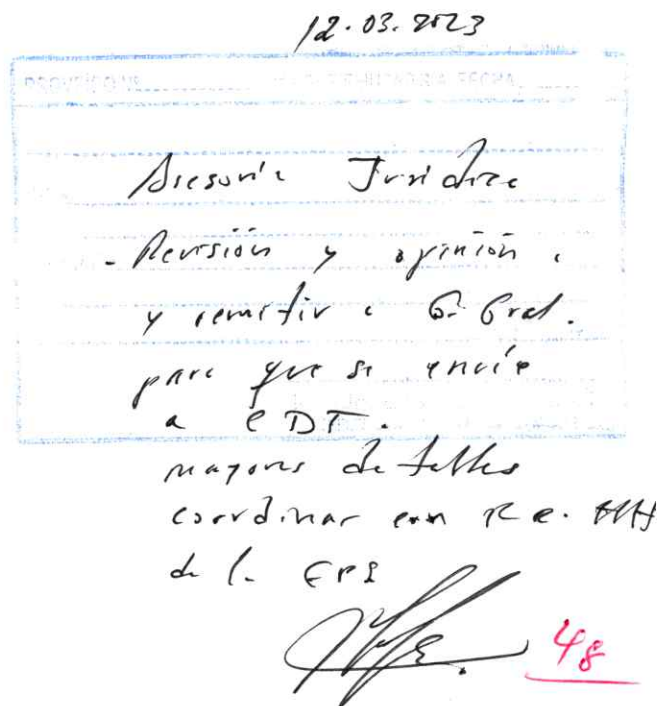 12.03.2023
PROVEIDO Nº FECHA
Asesoria Juridica
- Revisión y opinión.
y remitir a G. Gral.
para que se envíe
a CDT.
mayores detalles
coordinar con Re. HH
de la
48